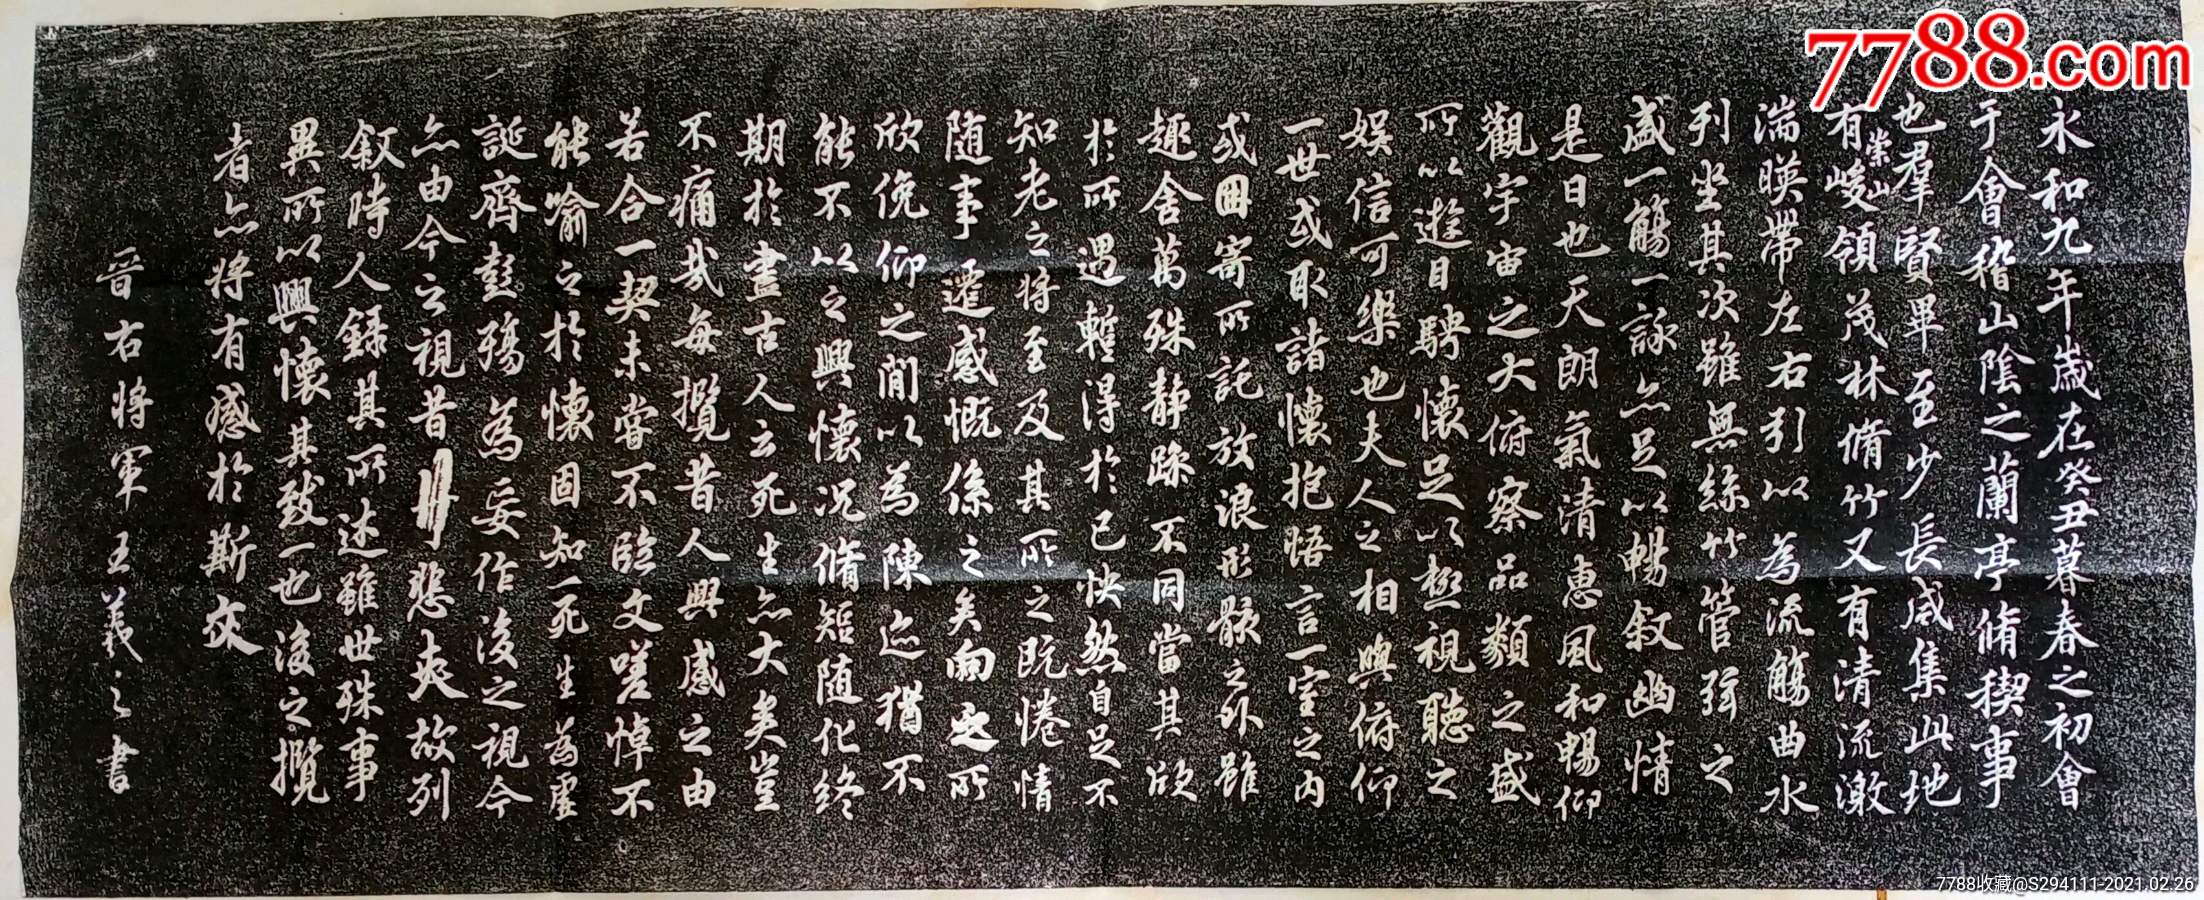 永和九年歲在癸丑暮春之初會
于會稽山陰之蘭亭脩稧事
也羣賢畢至少長咸集此地
有崇山峻領茂林脩竹又有清流激
湍暎帶左右引以為流觴曲水
列坐其次雖無絲竹管弦之
盛一觴一詠亦足以暢敘幽情
是日也天朗氣清惠風和暢仰
觀宇宙之大俯察品類之盛
所以遊目騁懷足以極視聽之
娛信可樂也夫人之相與俯仰
一世或取諸懷抱悟言一室之內
或因寄所託放浪形骸之外雖
趣舍萬殊靜躁不同當其欣
於所遇暫得於己快然自足不
知老之將至及其所之既惓情
隨事遷感慨係之矣向之所
欣俛仰之閒以為陳迹猶不
能不以之興懷況脩短隨化終
期於盡古人云死生亦大矣豈
不痛哉每攬昔人興感之由
若合一契未嘗不臨文嗟悼不
能喻之於懷固知一死生為虛
誕齊彭殤為妄作後之視今
亦由今之視昔悲夫故列
敘時人錄其所述雖世殊事
異所以興懷其致一也後之攬
者亦將有感於斯文
晉右將軍王羲之書
7788.com
7788收藏@S294111-2021.02.26